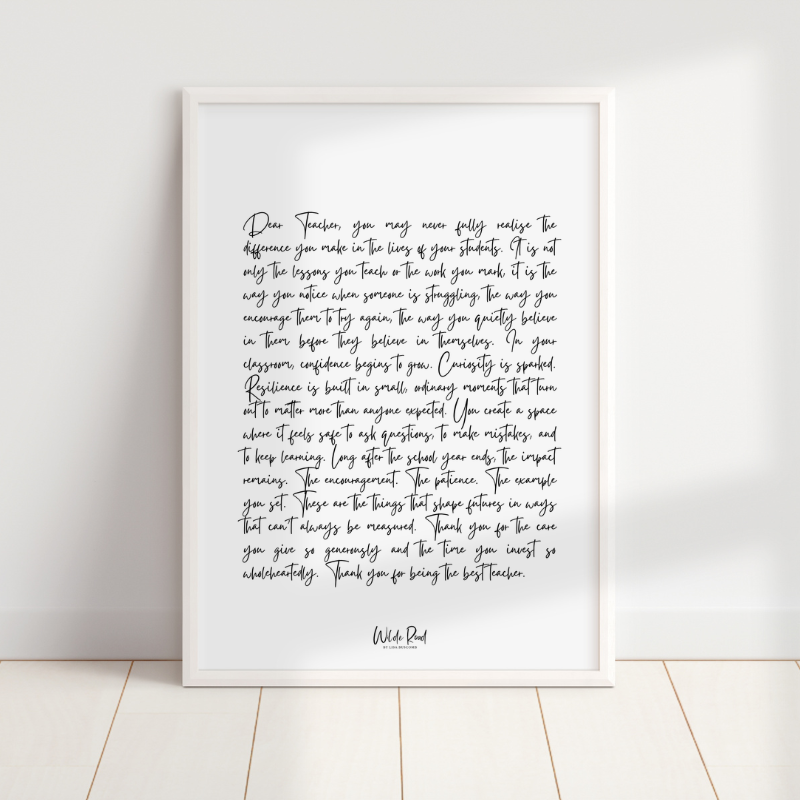 Dear Teacher, you may never fully realise the
difference you make in the lives of your students. It is not
only the lessons you teach or the work you mark, it is the
way you notice when someone is struggling, the way you
encourage them to try again, the way you quietly believe
in them before they believe in themselves. In your
classroom, confidence begins to grow. Curiosity is sparked.
Resilience is built in small, ordinary moments that turn
out to matter more than anyone expected. You create a space
where it feels safe to ask questions, to make mistakes, and
to keep learning. Long after the school year ends, the impact
remains. The encouragement. The patience. The example
you set. These are the things that shape futures in ways
that can't always be measured. Thank you for the care
you give so generously and the time you invest so
wholeheartedly. Thank you for being the best teacher.
Wilde Road